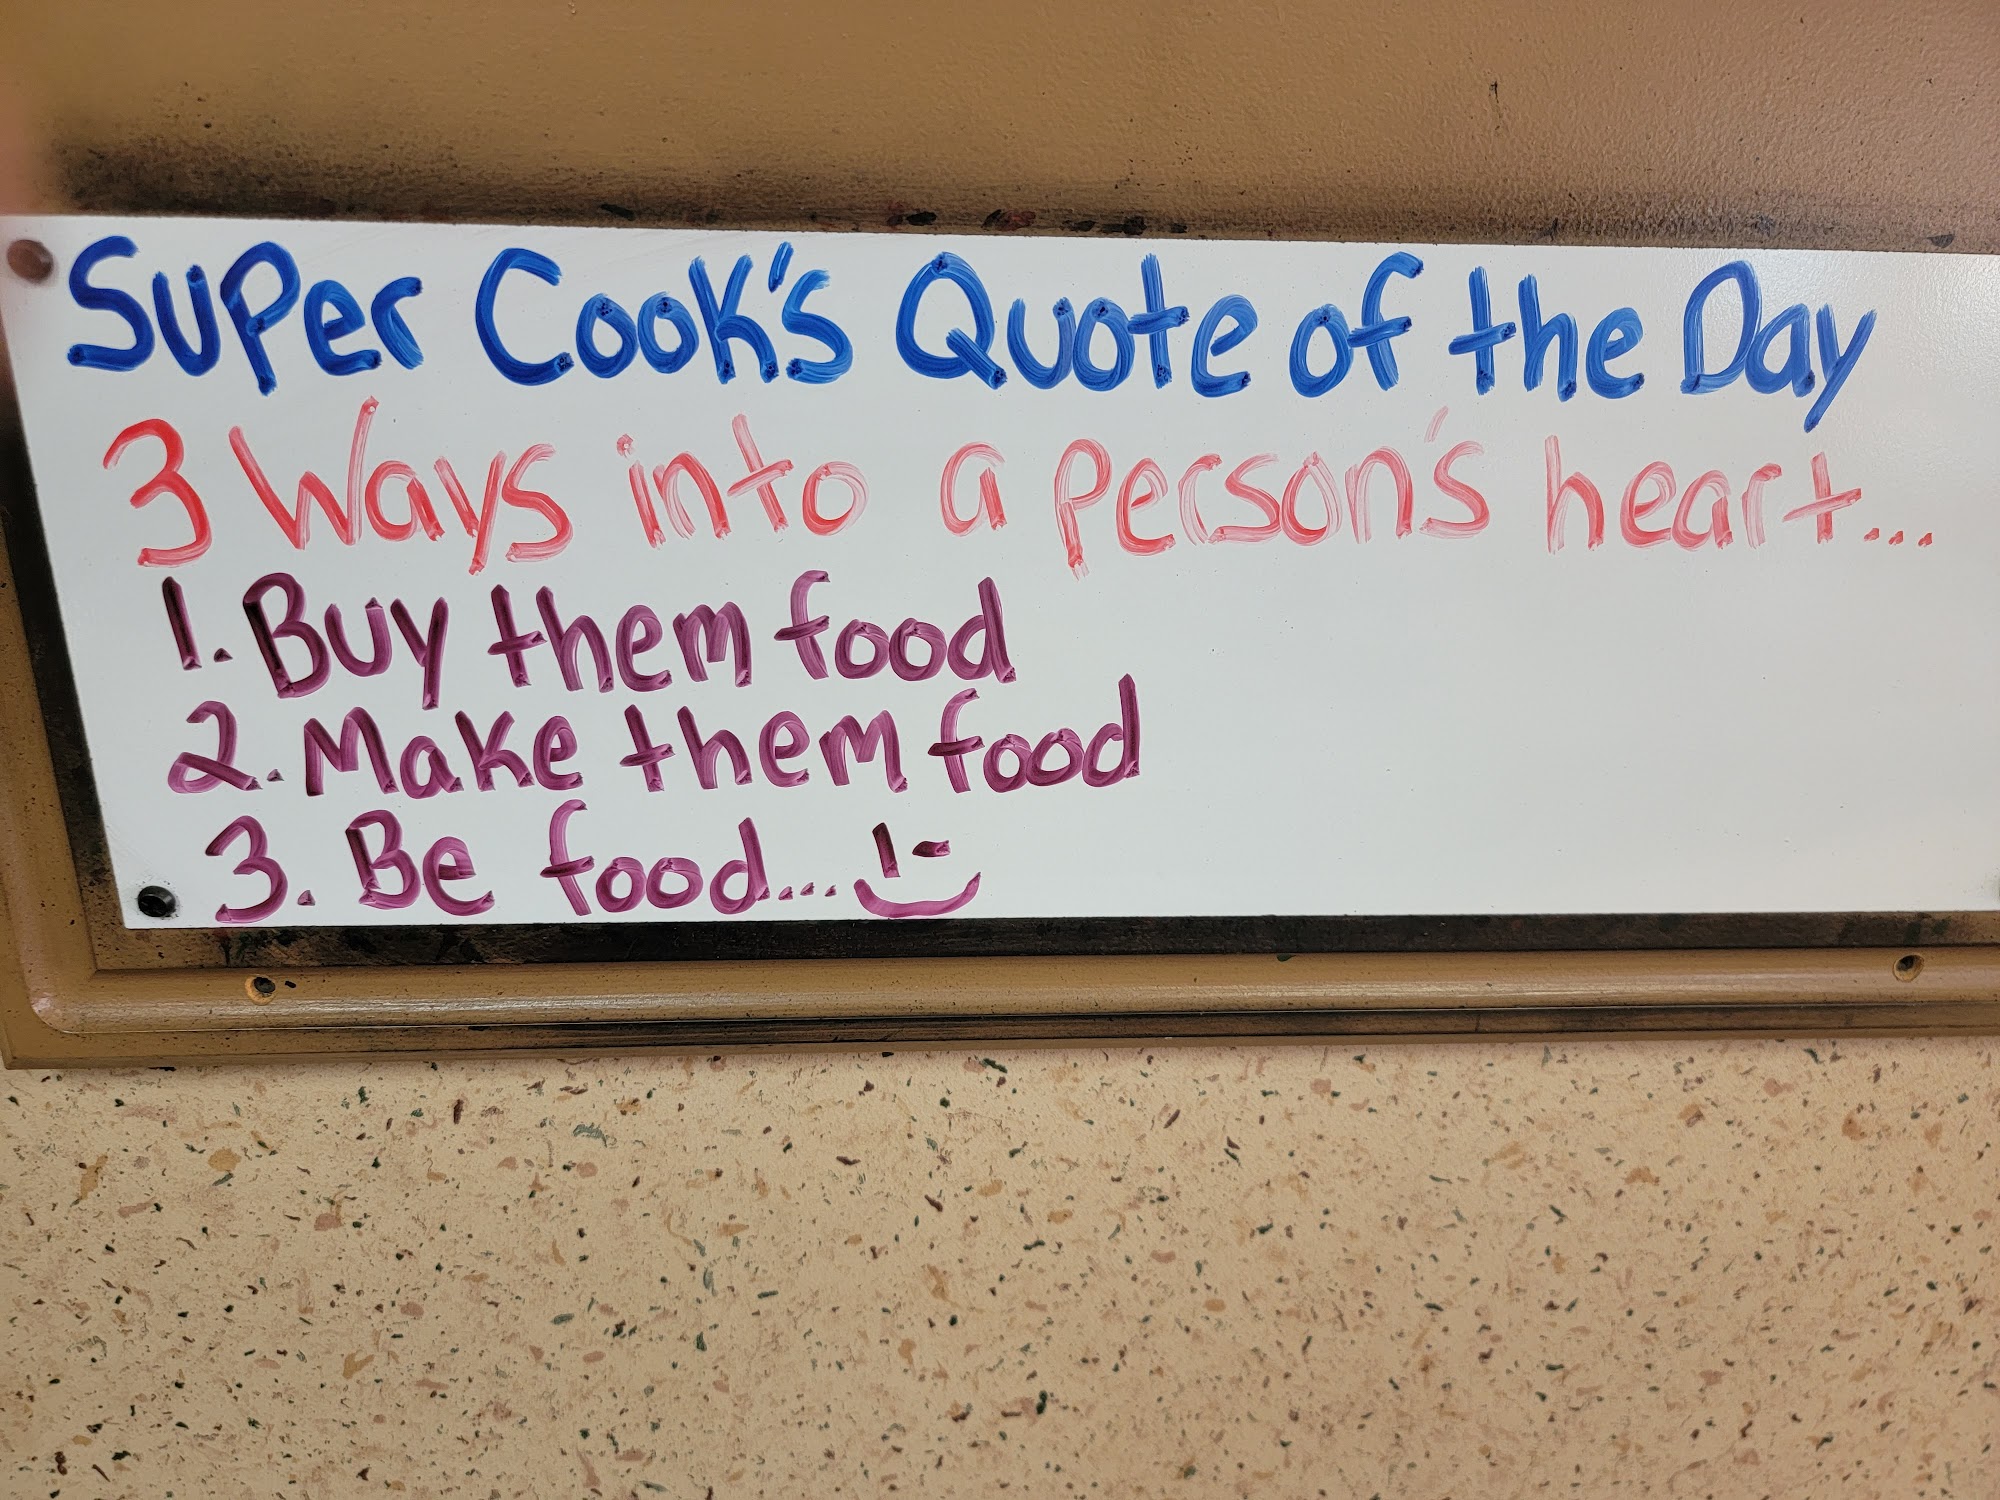 Super Cook's Quote of the Day
3 Ways into a person's heart...
1. Buy them food
2. Make them food
3. Be food...